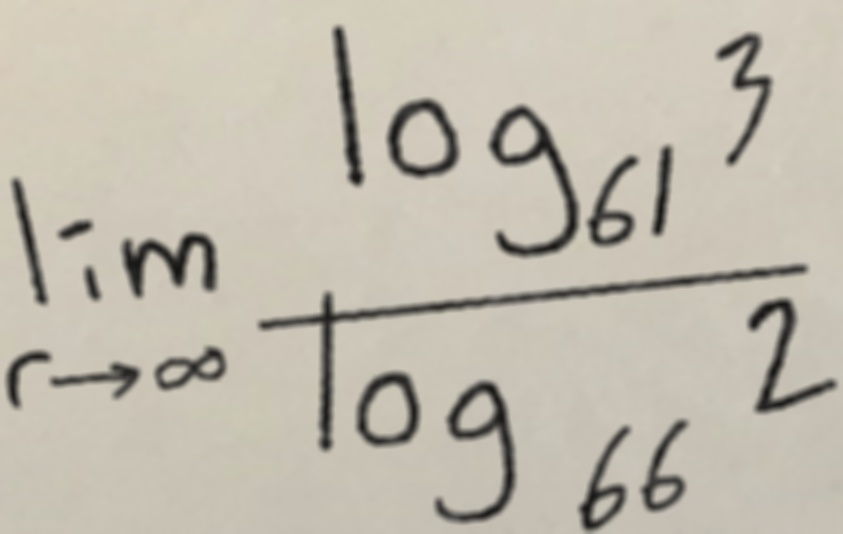 \lim_{r \to \infty} \frac{\log_{61} 3}{\log_{66} 2}